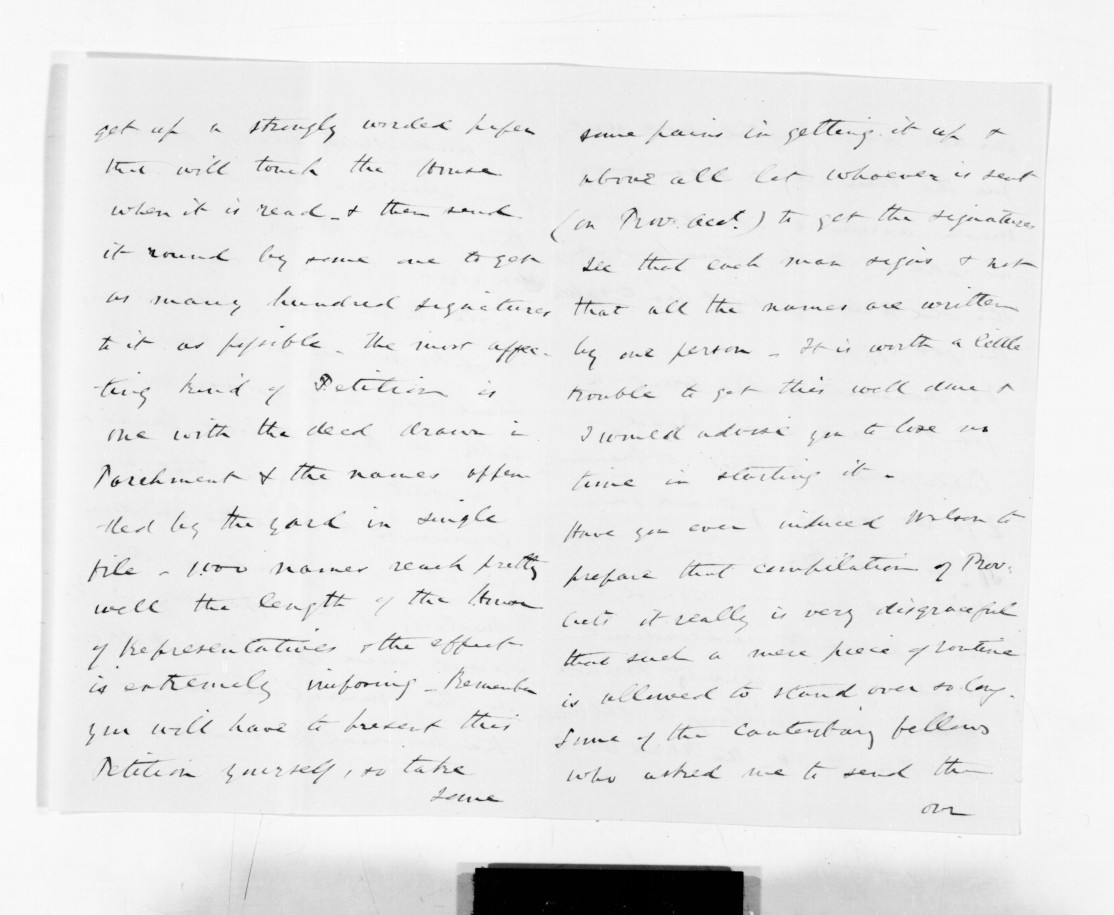 get up a strongly worded paper
that will touch the House
when it is read - & then send
it round by some one to get
as many hundred signatures
to it as possible - The most affec-
-ting kind of Petition is
one with the deed drawn in
Parchment & the names appen
-ded by the yard in single
file - 1,000 names reach pretty
well the length of the House
of Representatives & the effect
is extremely imposing - Remember
you will have to present this
Petition yourself, so take
some
some pains in getting it up &
above all let whoever is sent
(on Prov. acct.) to get the signatures
see that each man signs & not
that all the names are written
by one person - It is worth a little
trouble to get this well done &
I would advise you to lose no
time in starting it -
Have you ever induced Wilson to
prepare that compilation of Prov.
Acts it really is very disgraceful
that such a mere piece of routine
is allowed to stand over so long.
Some of the Canterbury fellows
who asked me to send them
our